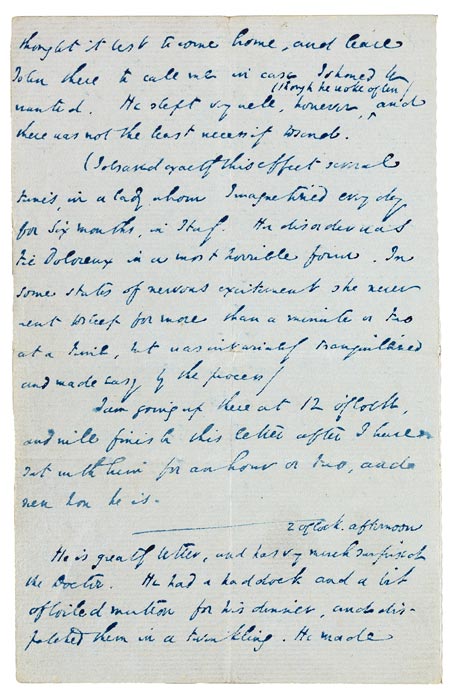 thought it best to come home, and leave
John there to call me in case I should be
wanted. He slept very well, however, (though he woke often) and
there was not the least necessity to send.
(I observed exactly this effect several
times, in a lady whom I magnetized every day
for six months, in Italy. Her disorder was
Tic Doloreux in a most horrible form. In
some states of nervous excitement she never
went to sleep for more than a minute or two
at a time, but was invariably tranquillized
and made easy by the process)
I am going up there at 12 o'Clock,
and will finish this letter after I have
sat with him for an hour or two, and
seen how he is.
2 o'Clock. afternoon
He is greatly better, and has very much surprised
the Doctor. He had a haddock and a bit
of boiled mutton for his dinner, and dis-
patched them in a twinkling. He made